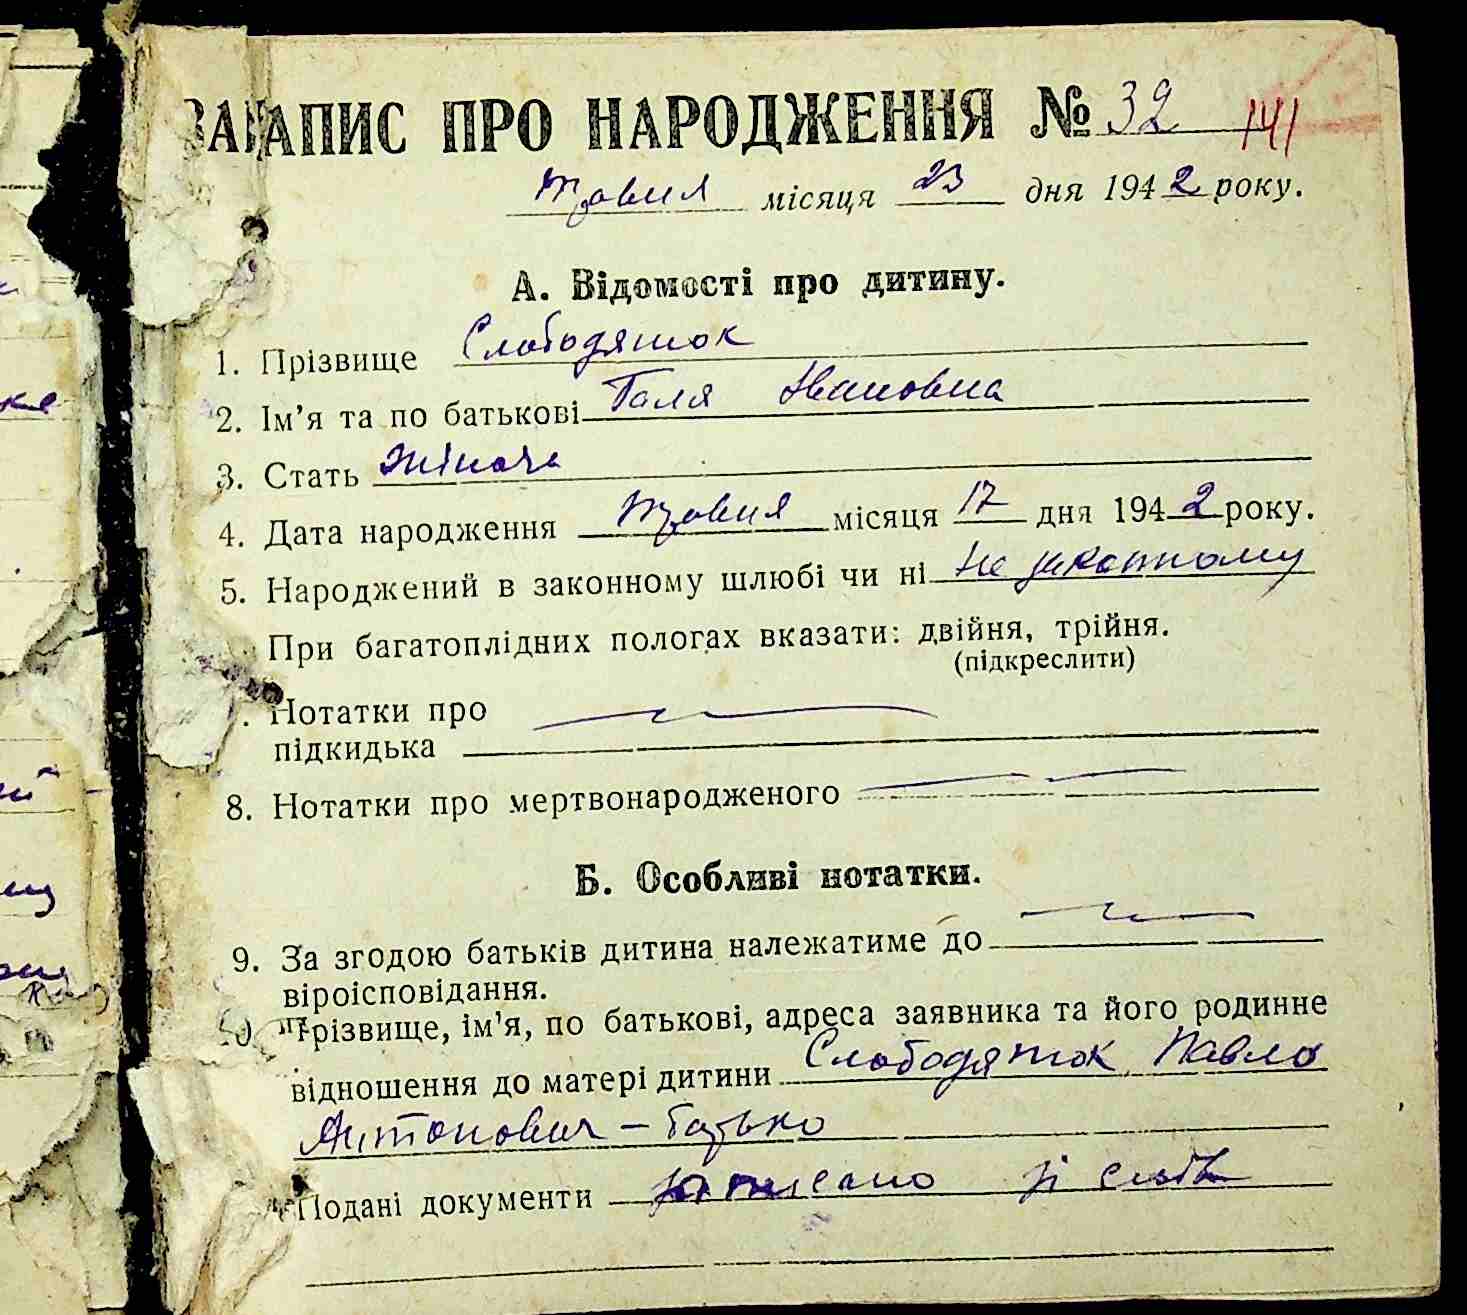 ЗАПИС ПРО НАРОДЖЕННЯ № 32 141
травня місяця 23 дня 1942 року.
А. Відомості про дитину.
1. Прізвище Слободянюк
2. Ім'я та по батькові Галя Івановна
3. Стать жіноча
4. Дата народження травня місяця 17 дня 1942 року.
5. Народжений в законному шлюбі чи ні не законному
При багатоплідних пологах вказати: двійня, трійня.
(підкреслити)
. Нотатки про
підкидька
8. Нотатки про мертвонародженого
Б. Особливі нотатки.
9. За згодою батьків дитина належатиме до
віроісповідання.
Прізвище, ім'я, по батькові, адреса заявника та його родинне
відношення до матері дитини Слободянюк Павло
Антонович – батько
Подані документи записано зі слів